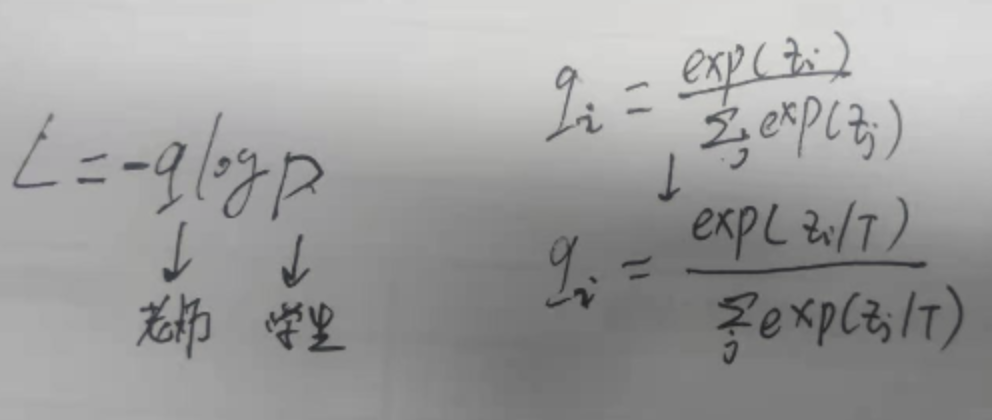 L = -q log p
↓ ↓
老师 学生
q_i = exp(z_i) / Σ_j exp(z_j)
↓
q_i = exp(z_i/T) / Σ_j exp(z_j/T)